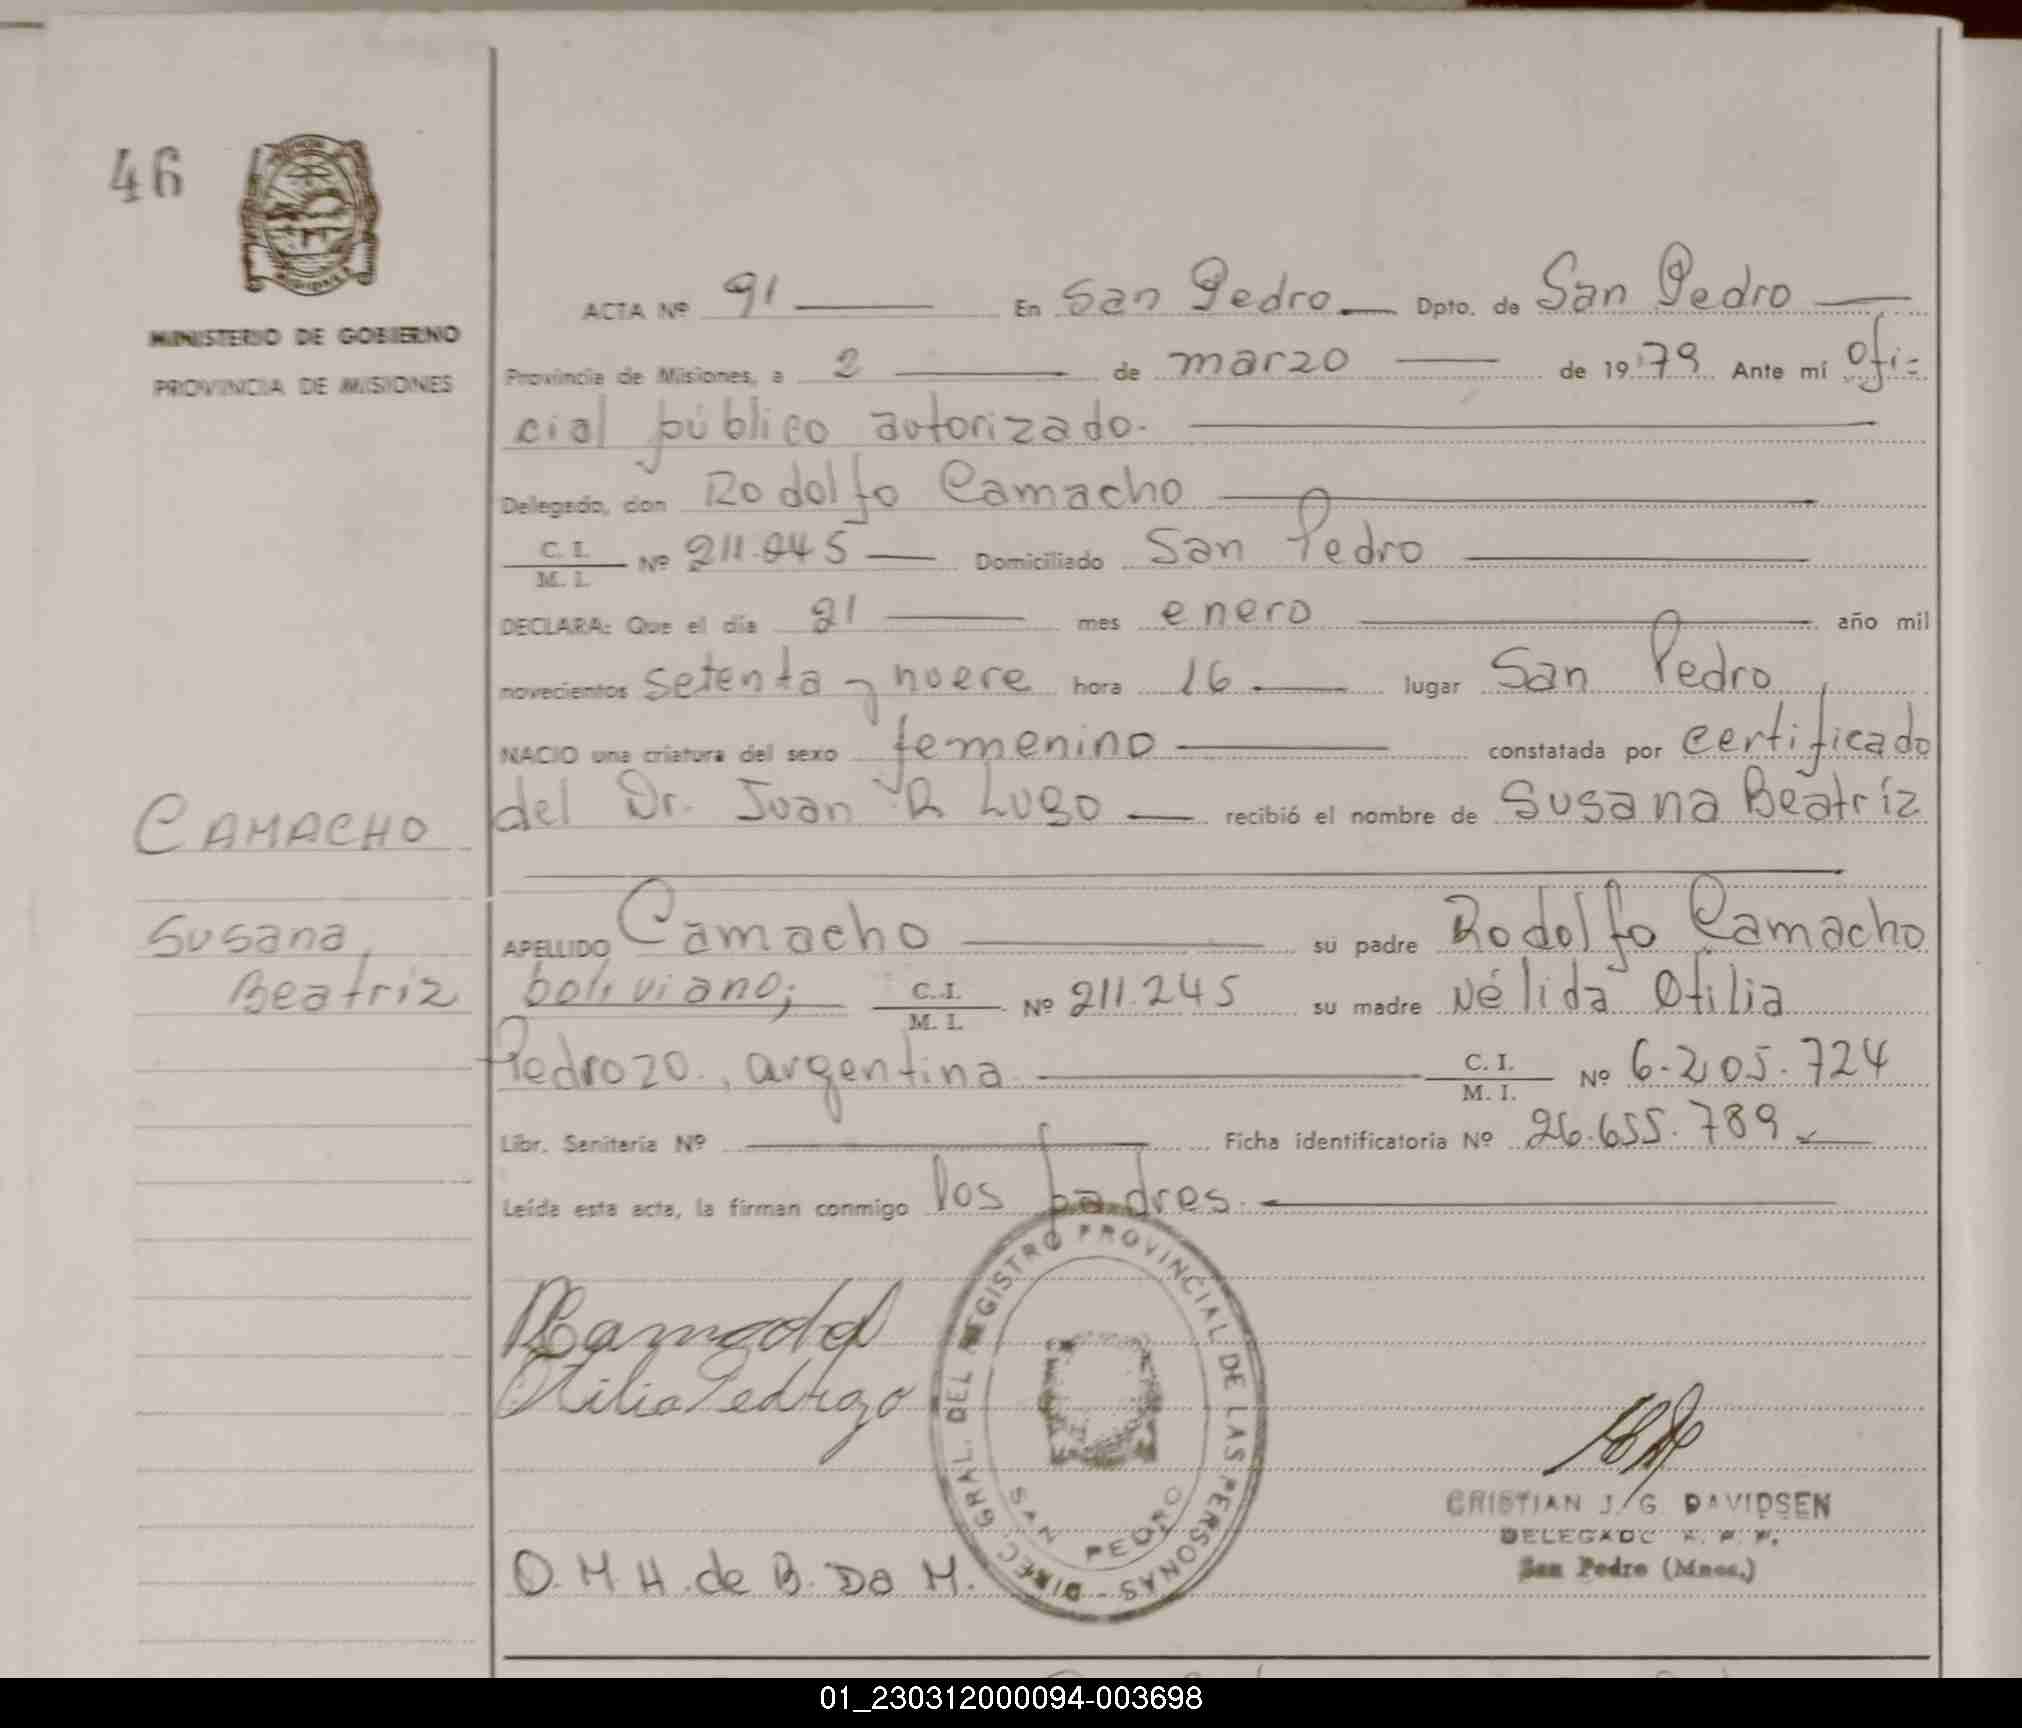 46
MINISTERIO DE GOBIERNO
PROVINCIA DE MISIONES
ACTA Nº 91 En San Pedro Dpto. de San Pedro
Provincia de Misiones, a 2 de marzo de 1979 Ante mí Ofi-
cial público autorizado.
Delegado, don Rodolfo Camacho
C. I. / M. I. Nº 211.245 Domiciliado San Pedro
DECLARA: Que el día 21 mes enero año mil
novecientos setenta y nueve hora 16 lugar San Pedro
NACIO una criatura del sexo femenino constatada por certificado
del Dr. Juan R Lugo recibió el nombre de Susana Beatríz
CAMACHO
Susana
Beatriz
APELLIDO Camacho su padre Rodolfo Camacho
boliviano; C. I. / M. I. Nº 211.245 su madre Nélida Otilia
Pedrozo, argentina C. I. / M. I. Nº 6.205.724
Libr. Sanitaria Nº Ficha identificatoria Nº 26.655.789
Leída esta acta, la firman conmigo los padres.
Otilia Pedrozo
DIREC. GRAL. DEL REGISTRO PROVINCIAL DE LAS PERSONAS -
SAN PEDRO
CRISTIAN J. G. DAVIDSEN
DELEGADO R. P. P.
San Pedro (Mnes.)
O. M. H. de B. Do M.
01_230312000094-003698